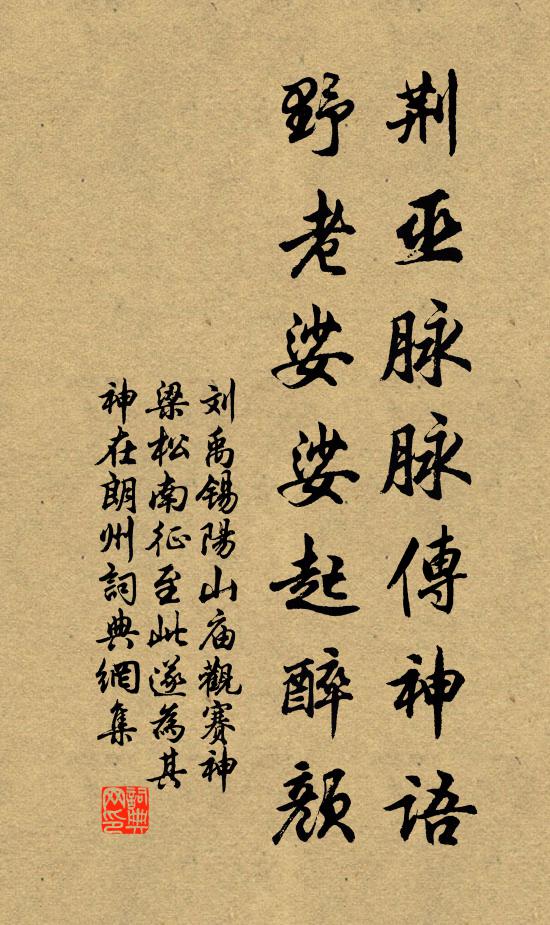 荆巫脉脉傳神語
野老娑娑起醉顏
刘禹锡陽山庙觀赛神
梁松南征至此遂為其
神在朗州詞典網集
詞典
网印